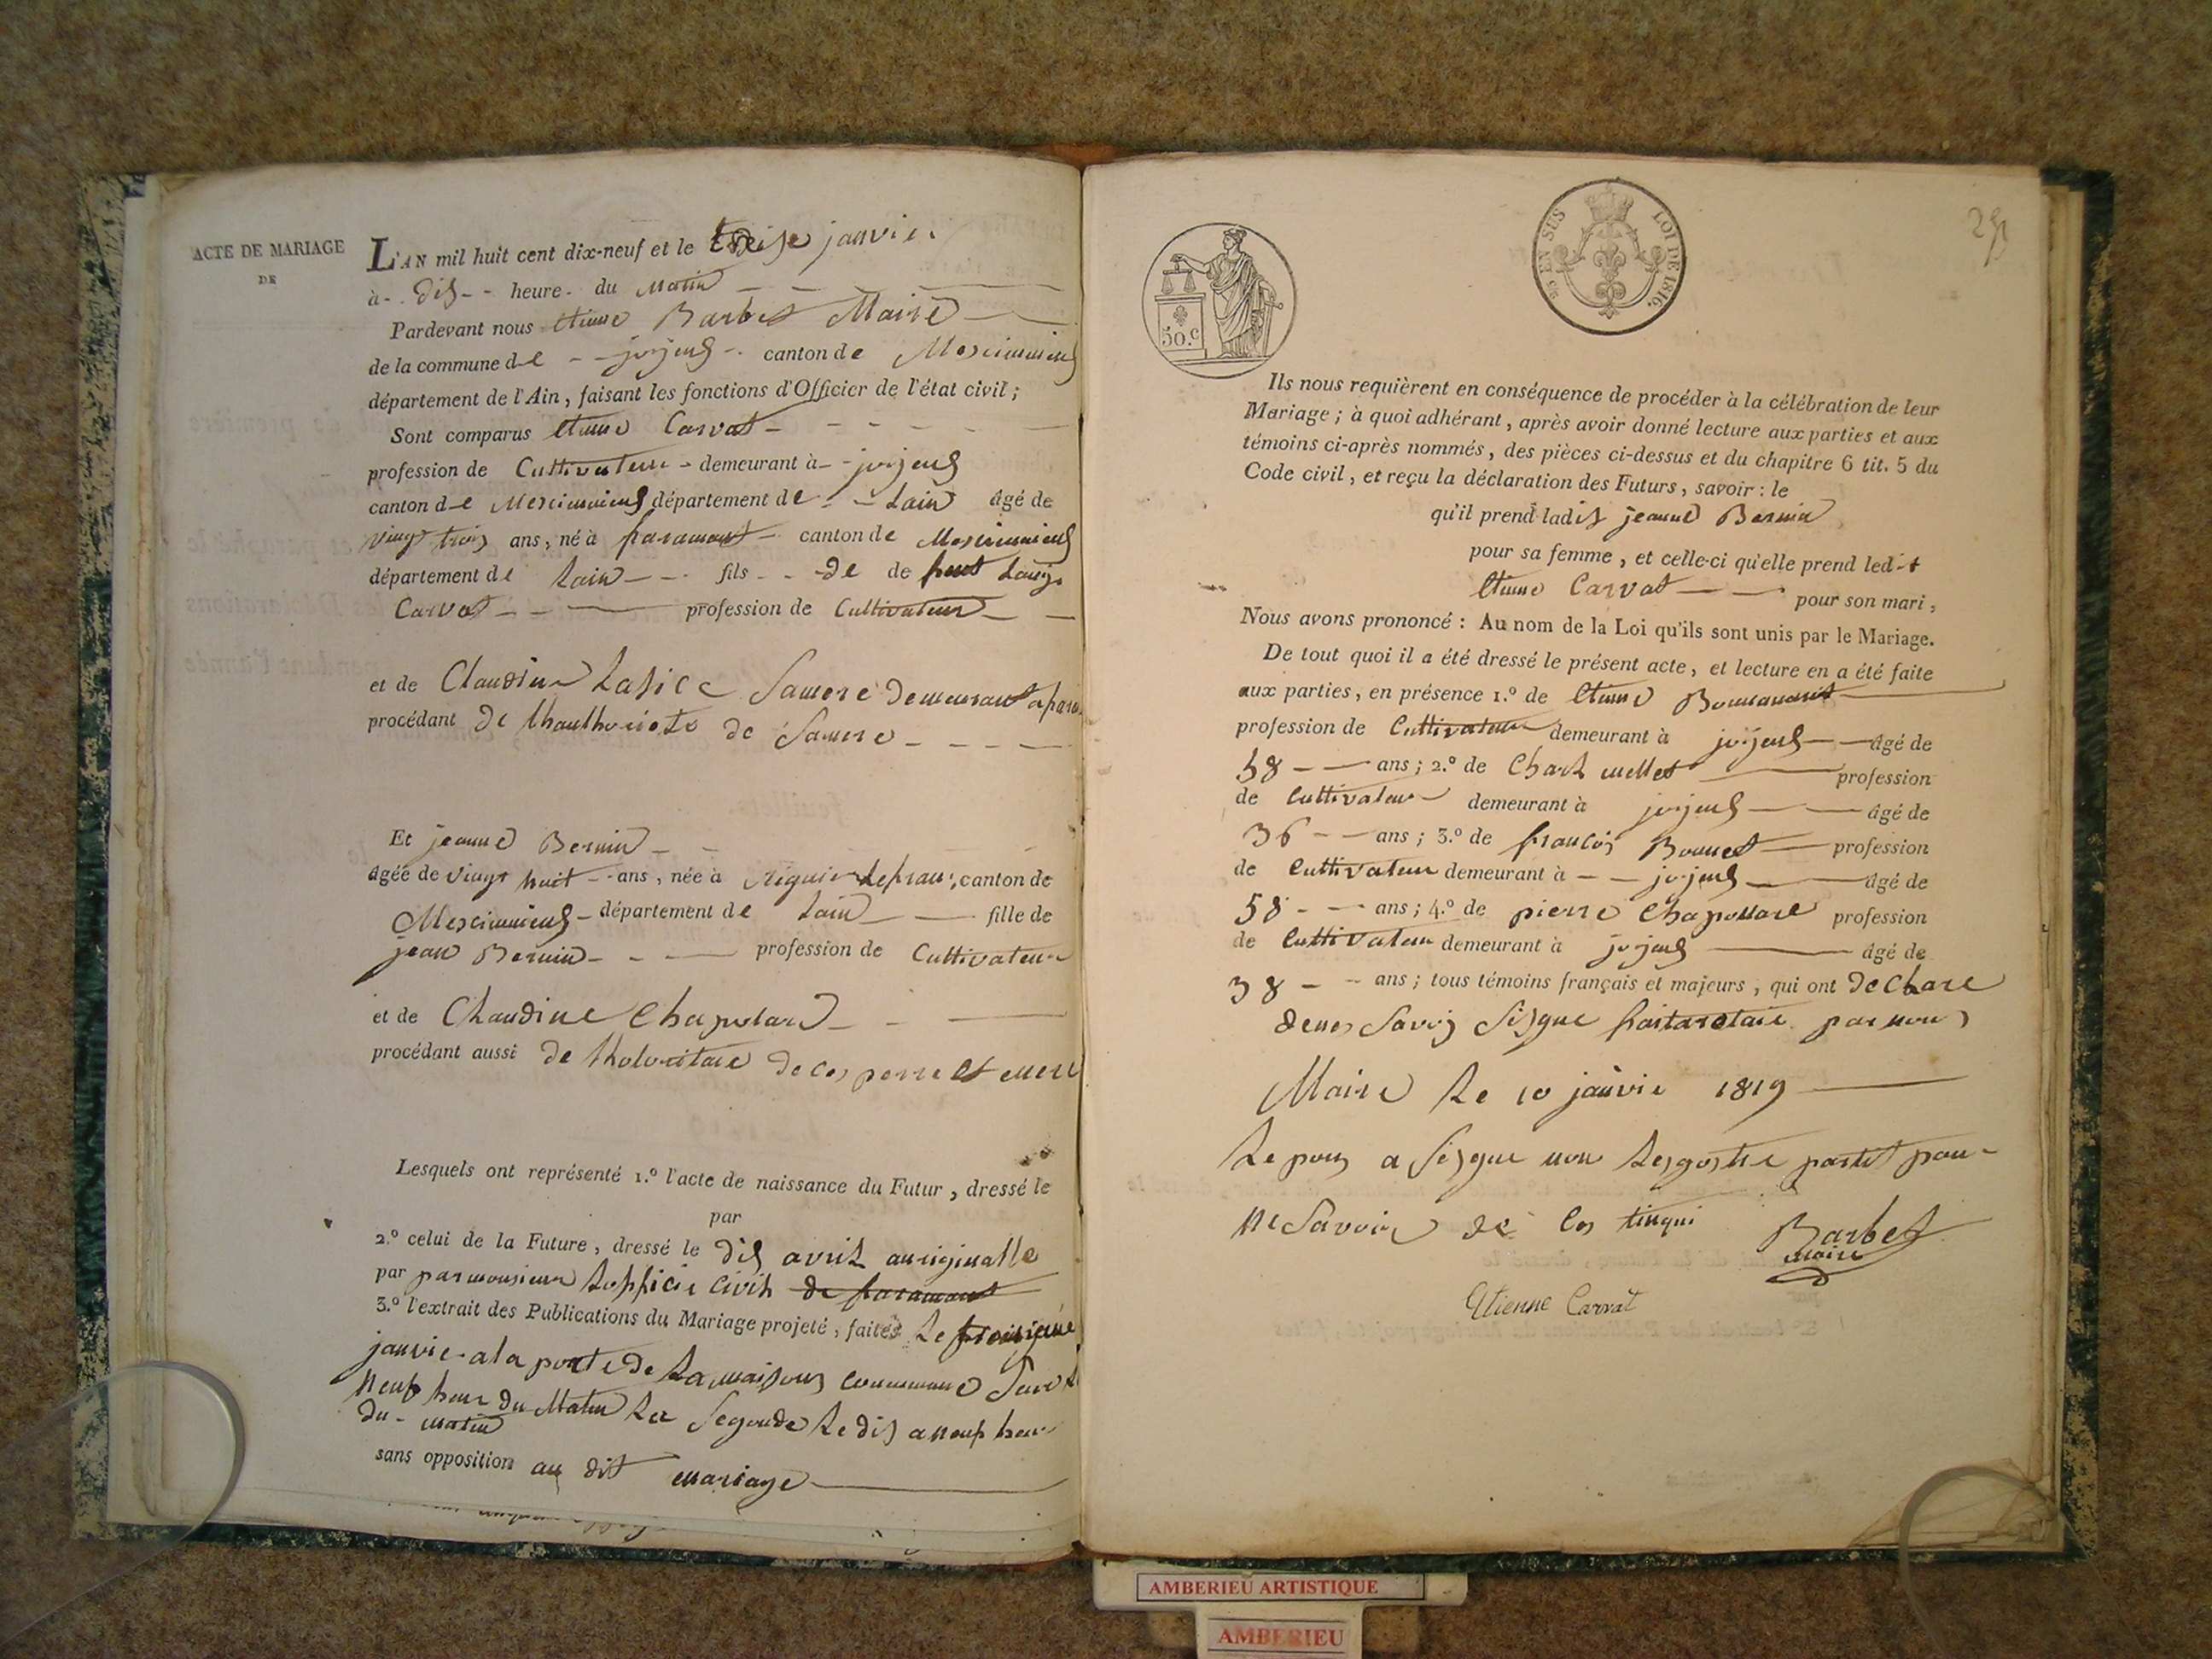 ACTE DE MARIAGE
DE
L'AN mil huit cent dix-neuf et le treise janvier
à - dis - - heure - du matin
Pardevant nous etienne Barbet Maire
de la commune de - - jojeus - canton de Meximieus
département de l'Ain, faisant les fonctions d'Officier de l'état civil;
Sont comparus etienne Carvat -
profession de Cultivateur - demeurant à - jojeus
canton de Meximieus département de - Lain âgé de
vingt trois ans, né à faramant - canton de Meximieus
département de Lain - - fils - - de de feut Louis
Carvat - profession de Cultivateur
et de Claudine Lasice Samere demeurant a fara
procédant de Lhauthoriste de Samere -
Et jeanne Bernin -
âgée de vingt huit - ans, née à Rignieu Lefran, canton de
Meximieus - département de Lain - fille de
jean Bernin - profession de Cultivateur
et de Claudine Chapolard -
procédant aussi de de ces perre et mere
Lesquels ont représenté 1.º l'acte de naissance du Futur, dressé le
par
2.º celui de la Future, dressé le dis avril
par par monsieur Loffícier civil de faramant
3.º l'extrait des Publications du Mariage projeté, faites Le
janvier a la porte de La maison commune
neuf heur du Matin La Segonde Le dis a neuf heur
du - matin
sans opposition au dit mariage
50.c
5 C EN SUS LOI DE 1816.
Ils nous requièrent en conséquence de procéder à la célébration de leur
Mariage; à quoi adhérant, après avoir donné lecture aux parties et aux
témoins ci-après nommés, des pièces ci-dessus et du chapitre 6 tit. 5 du
Code civil, et reçu la déclaration des Futurs, savoir: le
qu'il prend ladit jeanne Bernin
pour sa femme, et celle-ci qu'elle prend ledit
etienne Carvat - pour son mari,
Nous avons prononcé: Au nom de la Loi qu'ils sont unis par le Mariage.
De tout quoi il a été dressé le présent acte, et lecture en a été faite
aux parties, en présence 1.º de etienne
profession de Cultivateur demeurant à jojeus - âgé de
58 - ans; 2.º de Charl mellet profession
de Cultivateur demeurant à jojeus - âgé de
36 - ans; 3.º de francois Bonnet - profession
de Cultivateur demeurant à - - jojeus - âgé de
58 - ans; 4.º de pierre Chapollare profession
de Cultivateur demeurant à jojeus - âgé de
38 - - ans; tous témoins français et majeurs, qui ont declare
Savoir Sisgne par nous
Maire Le 10 janvie 1819
Le pous a Sisgne non
ne Savoir de
Barbet
maire
Etienne Carvat
AMBERIEU ARTISTIQUE
AMBERIEU